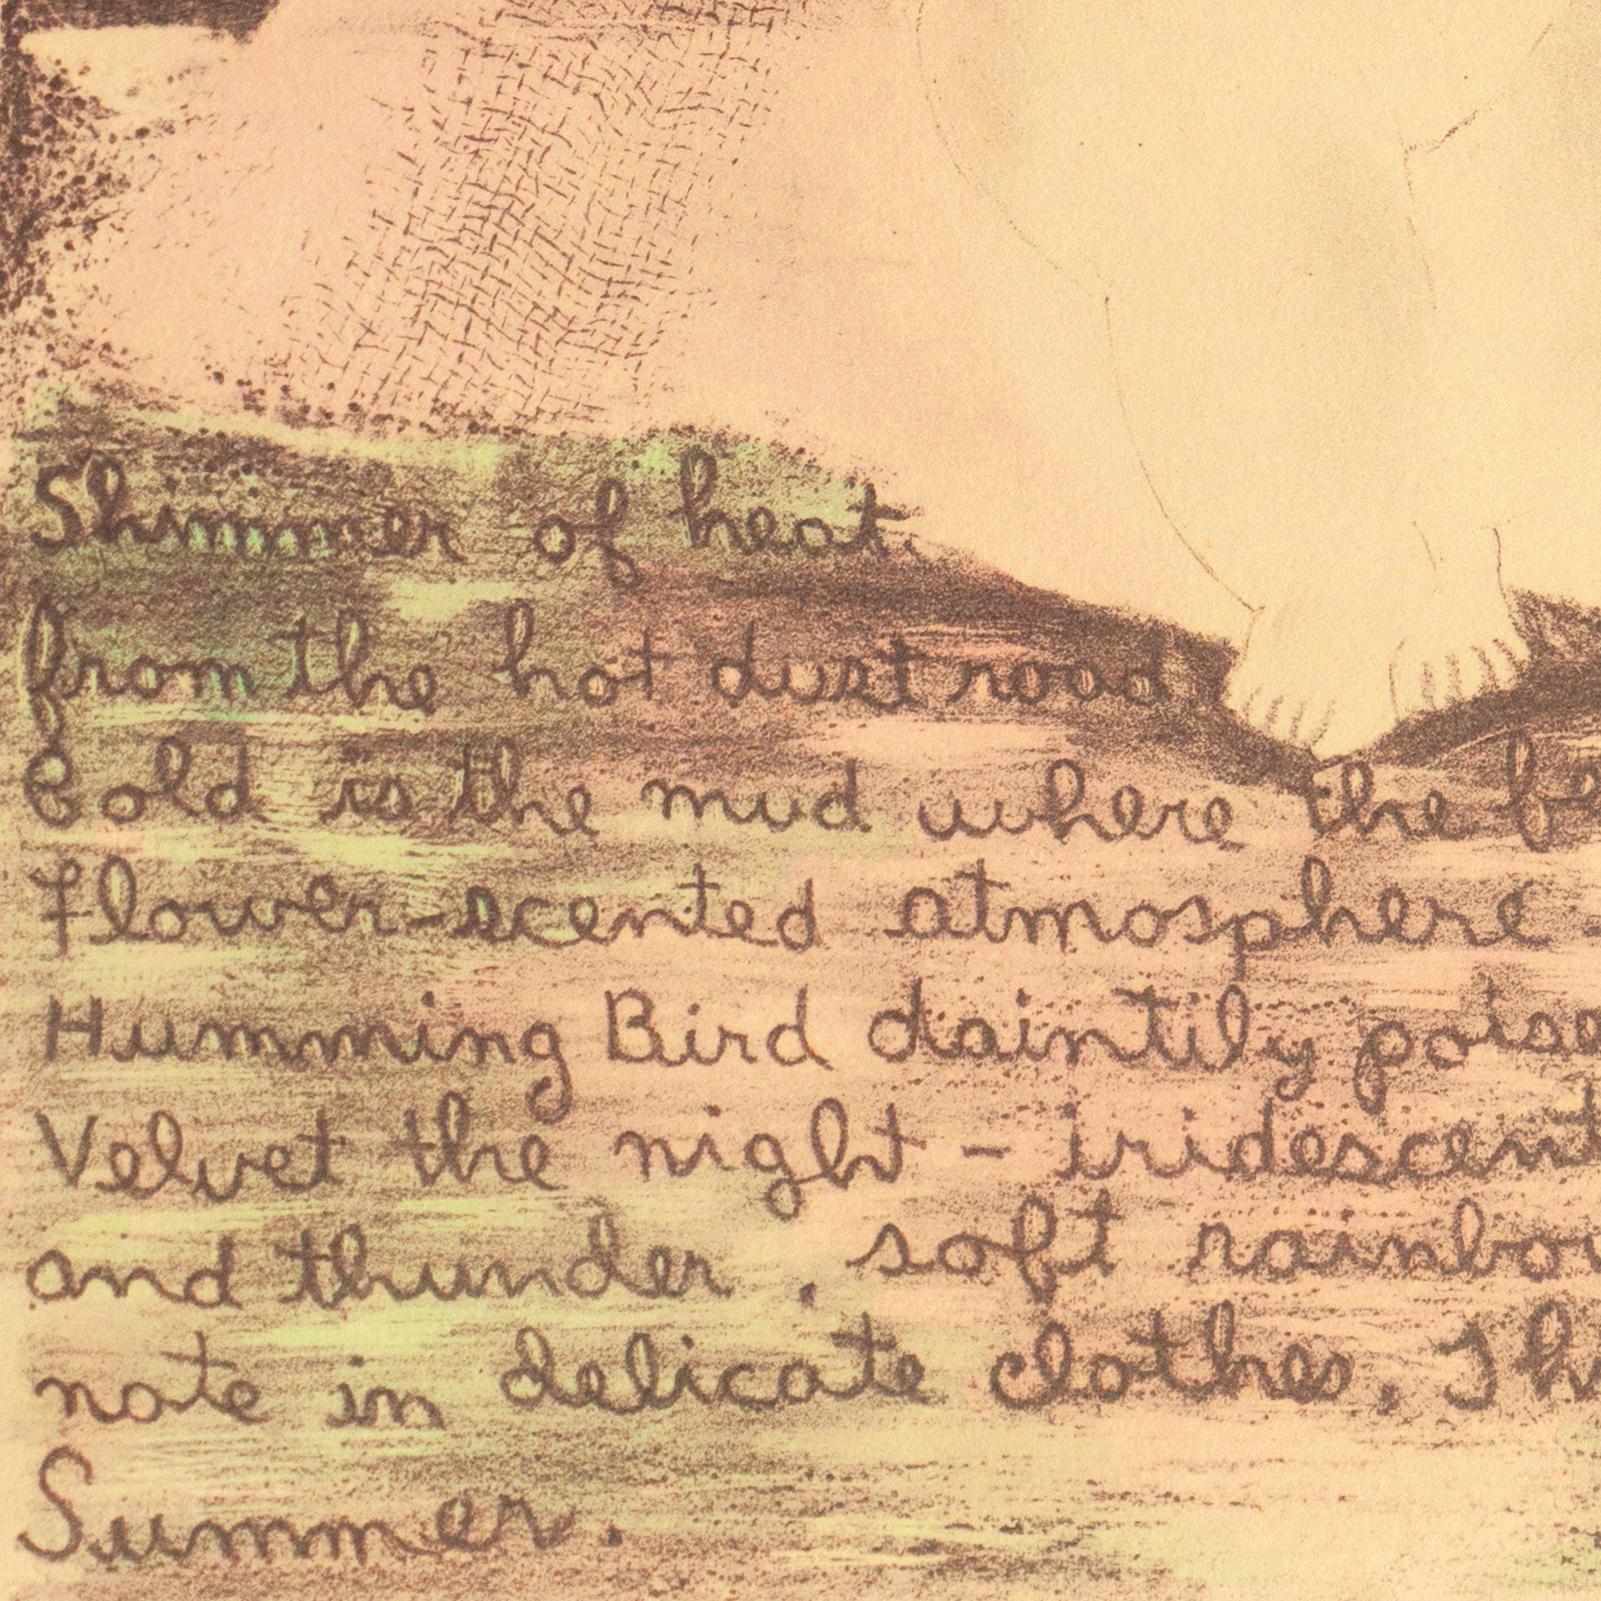 Shimmer of heat.
from the hot dust road
Cold is the mud where the
Flower-scented atmosphere -
Humming Bird daintily
Velvet the night - iridescent
and thunder. soft
note in delicate clothes.
Summer.